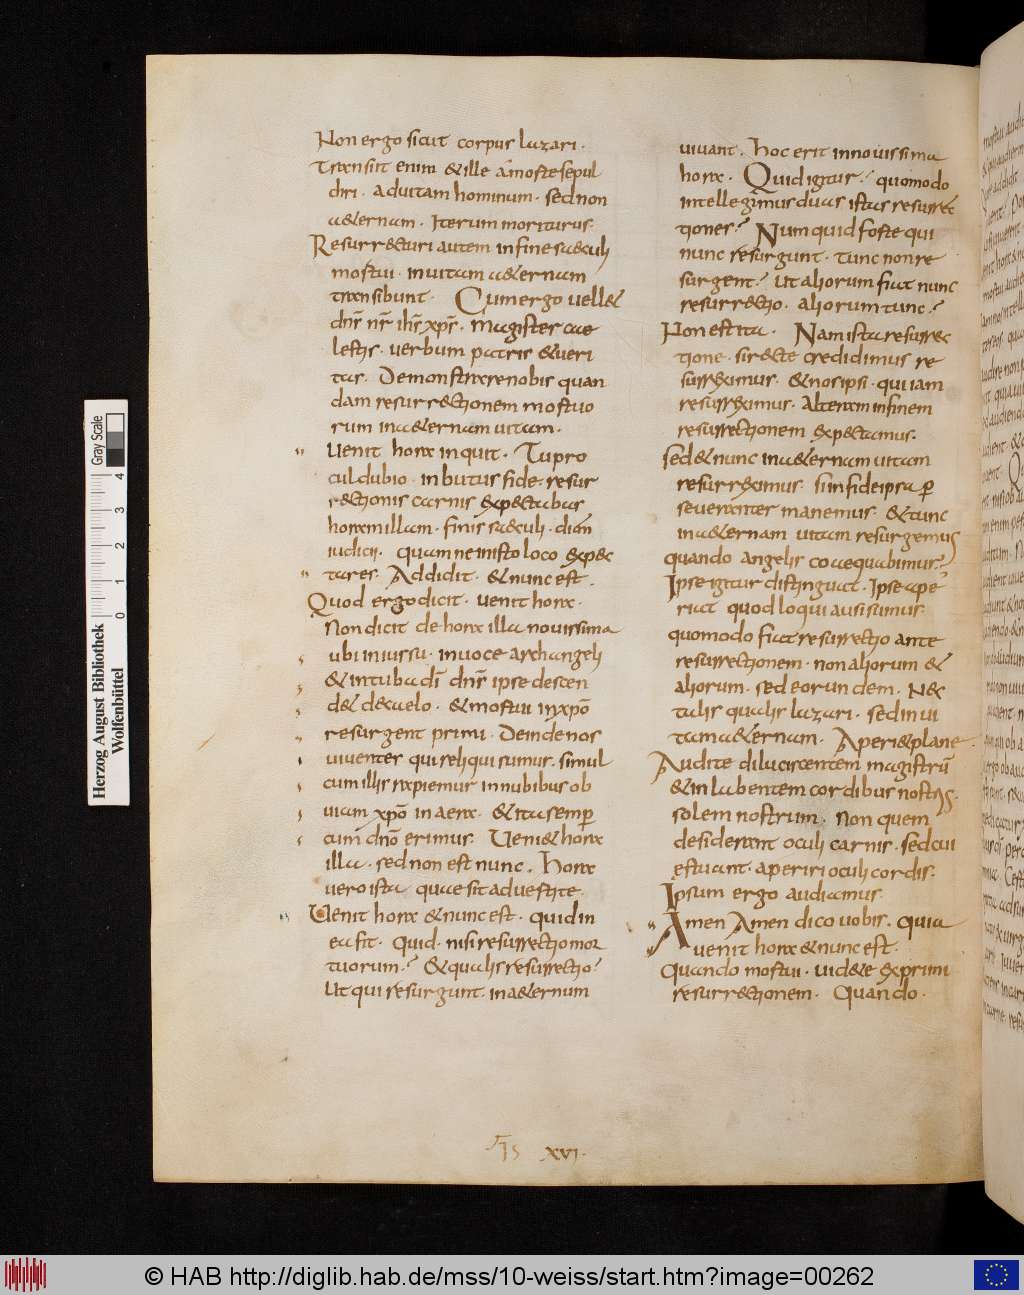 Non ergo sicut corpus lazari.
Transiit enim & ille a morte sepul
chri. ad uitam hominum. sed non
a&ernam. Iterum moriturus.
Resurr&turi autem in fine saeculi
mortui. in uitam a&ernam
transibunt. Cum ergo uell&
dn̄s nr̄ ih̄s xp̄s. magister cae
lestis. uerbum patris & ueri
tas. Demonstrare nobis quan
dam resurr&tionem mortuo
rum in a&ernam uitam.
Uenit hora inquit. Tu pro
cul dubio. inbutus fide. resur
r&tionis carnis exp&tabas
horam illam. finis saeculi. diem
iudicii. quam ne in isto loco exp&
tares. Addidit. & nunc est.
Quod ergo dicit. uenit hora.
Non dicit de hora illa nouissima
ubi in iussu. in uoce archangeli
& in tuba dī dn̄s ipse descen
d& de caelo. & mortui in xp̄o
resurgent primi. Deinde nos
uiuentes qui reliqui sumus. simul
cum illis rapiemur in nubibus ob
uiam xp̄o in aera. & ita semp
cum dn̄o erimus. Ueni& hora
illa. sed non est nunc. Hora
uero ista quae sit aduertite.
Uenit hora & nunc est. quid in
ea fit. quid. nisi resurrectio mor
tuorum? & qualis resurrectio?
Ut qui resurgunt. in a&ernum
uiuant. Hoc erit in nouissima
hora. Quid igitur? quomodo
intellegimus duas istas resurrec
tiones? Num quid forte qui
nunc resurgunt. tunc non re
surgent? ut aliorum fiat nunc
resurr&tio. aliorum tunc?
Non est ita. Nam ista resurrec
tione. si recte credidimus re
surreximus. & nos ipsi. qui iam
resurreximus. Alteram in finem
resurrectionem exp&tamus.
sed & nunc in a&ernam uitam
resurreximus. si in fide ipsa p
seueranter manemus. & tunc
in a&ernam uitam resurgemus
quando angelis coaequabimur?
Ipse igitur distinguat. Ipse ape
riat quod loqui ausi sumus.
quomodo fiat resurrectio ante
resurrectionem. non aliorum &
aliorum. sed eorundem. Nec
talis qualis lazari. sed in ui
tam a&ernam. Aperi& plane
Audite dilucescentem magistrū
& in labentem cordibus nostris
solem nostrum. Non quem
desiderant oculi carnis. sed cui
estuant. aperiri oculi cordis.
Ipsum ergo audiamus.
Amen Amen dico uobis. quia
uenit hora & nunc est.
Quando mortui. uid&e exprimi
resurr&tionem. Quando.
XVI.
Herzog August Bibliothek
Wolfenbüttel
0 1 2 3 4
Gray Scale
© HAB http://diglib.hab.de/mss/10-weiss/start.htm?image=00262